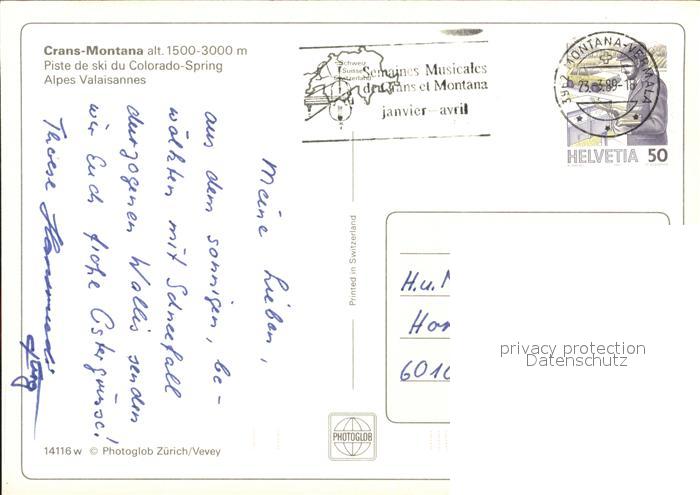 Crans-Montana alt. 1500-3000 m
Piste de ski du Colorado-Spring
Alpes Valaisannes
Schweiz
Suisse
Switzerland
Semaines Musicales
de Crans et Montana
janvier–avril
3962 MONTANA-VERMALA
23.-3.89-18
HELVETIA 50
Meine Lieben,
aus dem sonnigen, be-
wölkten mit Schneefall
durzogenen Wallis senden
wir Euch frohe Ostergrüsse!
Therese
Jürg
Printed in Switzerland
H.u.
6010
privacy protection
Datenschutz
PHOTOGLOB
14116 w © Photoglob Zürich/Vevey